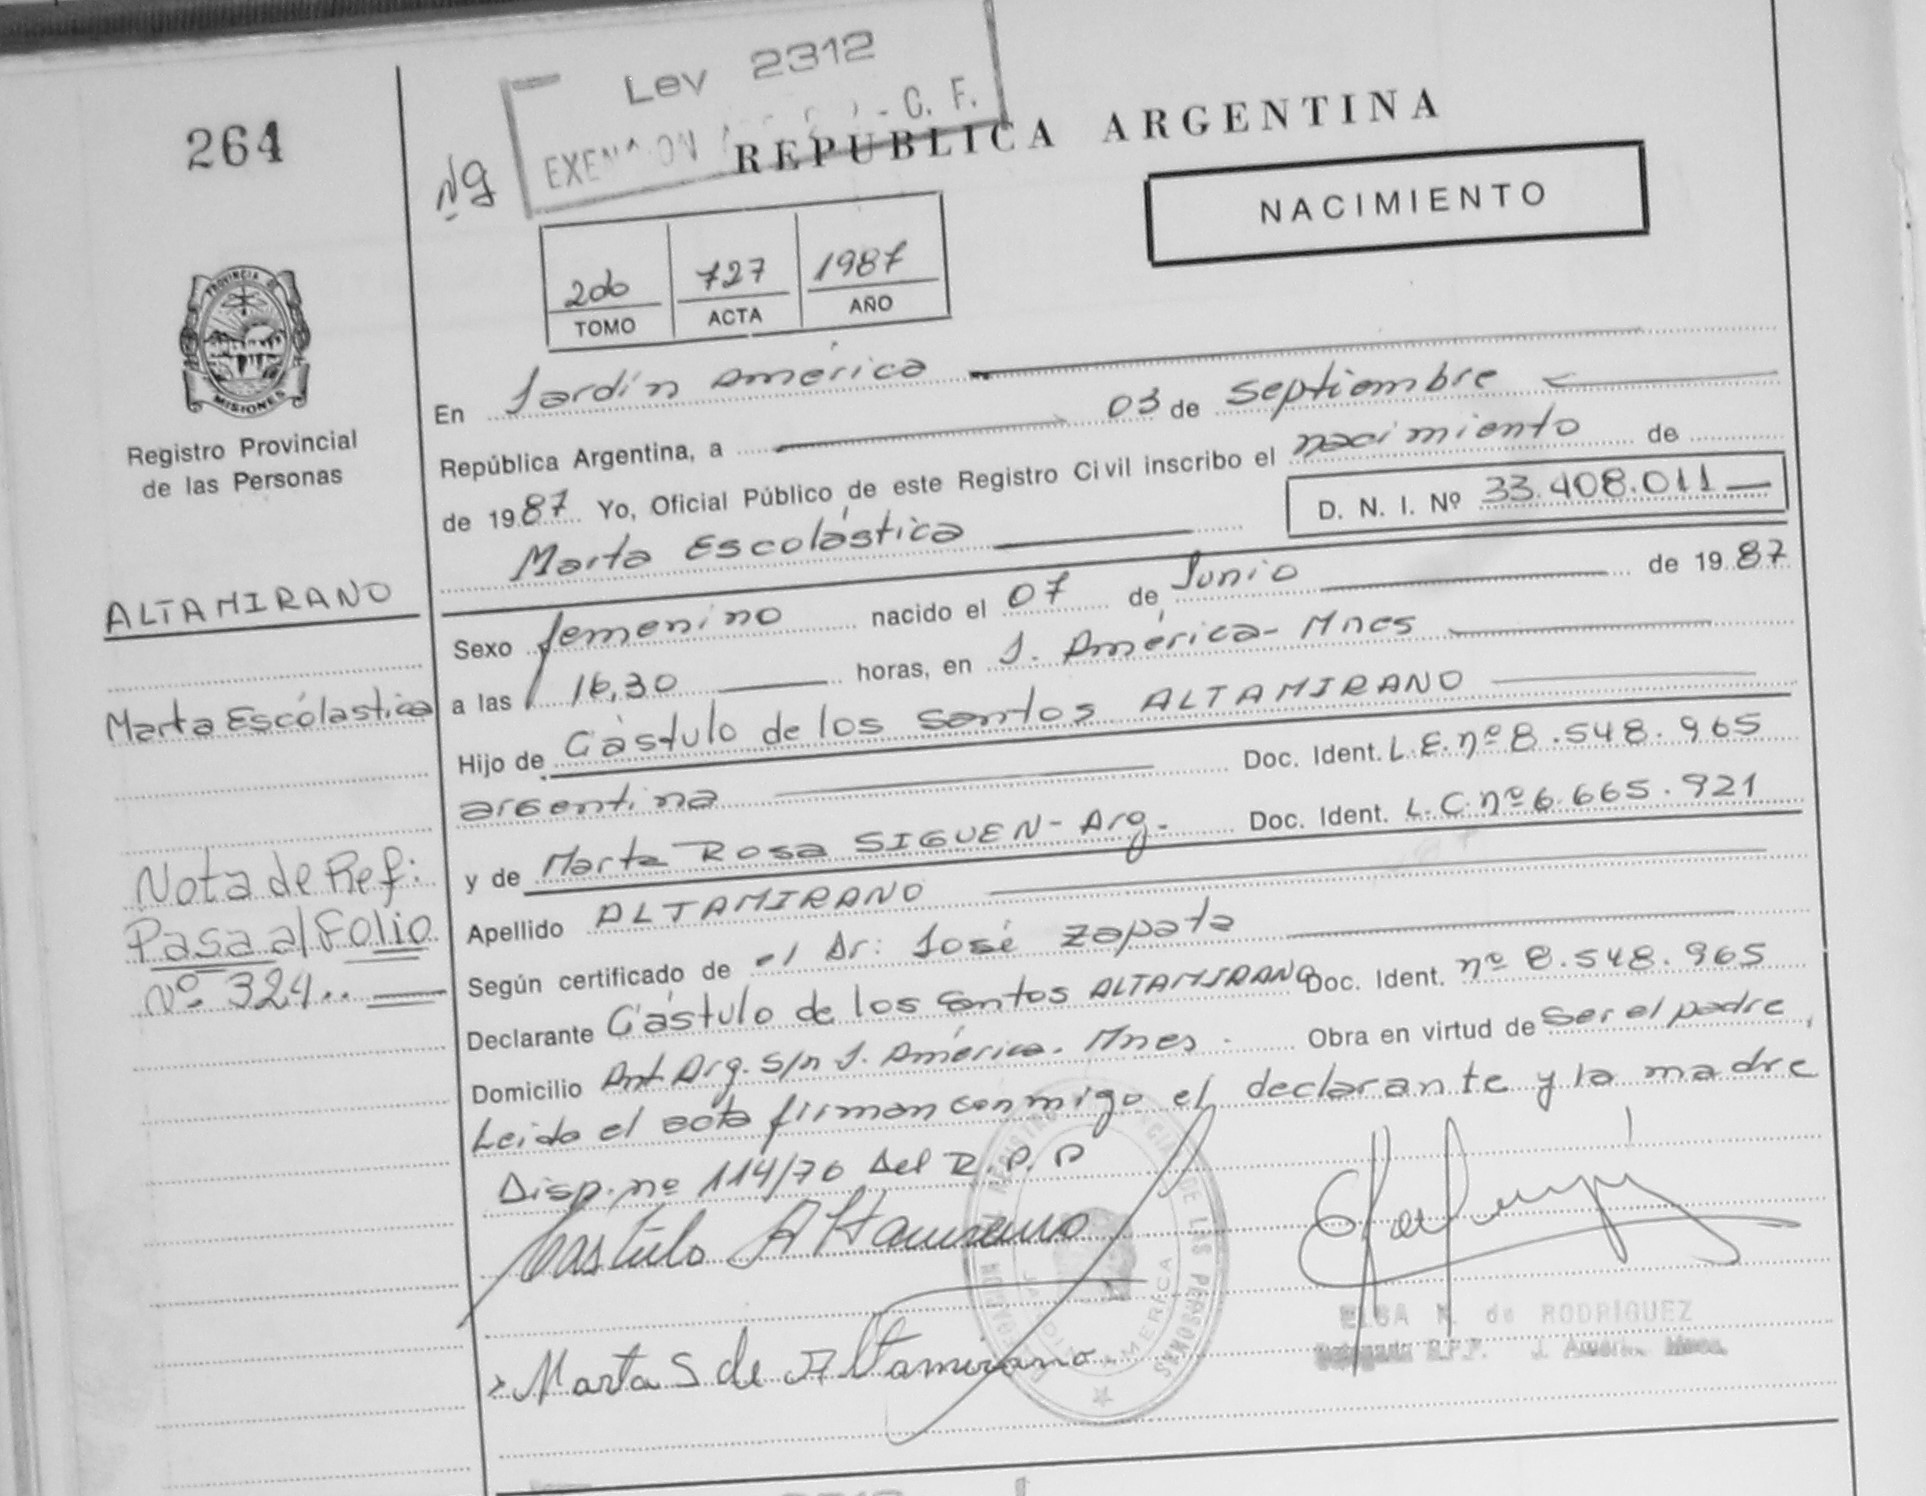 264
Ley 2312
C. F.
REPUBLICA ARGENTINA
NACIMIENTO
2do 727 1987
TOMO ACTA AÑO
PROVINCIA DE
MISIONES
Registro Provincial
de las Personas
ALTAMIRANO
Marta Escolastica
Nota de Ref:
Pasa al Folio
Nº 324..
En Jardín América
República Argentina, a 03 de septiembre
de 1987 Yo, Oficial Público de este Registro Civil inscribo el nacimiento de
Marta Escolástica
D. N. I. Nº 33.408.011
Sexo femenino nacido el 07 de Junio de 1987
a las 16,30 horas, en J. América - Mnes
Hijo de Cástulo de los santos ALTAMIRANO
argentina Doc. Ident. L.E. nº 8.548.965
y de Marta Rosa SIGUEN - Arg. Doc. Ident. L.C. nº 6.665.921
Apellido ALTAMIRANO
Según certificado de el Dr: José Zapata
Declarante Cástulo de los santos ALTAMIRANO Doc. Ident. nº 8.548.965
Domicilio Ant. Arg. s/n J. América. Mnes. Obra en virtud de ser el padre,
Leido el acta firman conmigo el declarante y la madre
Disp. nº 114/76 del R.P.P
Castulo Altamirano
Marta S de Altamirano
ELSA N. de RODRIGUEZ
Delegada R.P.P. J. América Mnes.